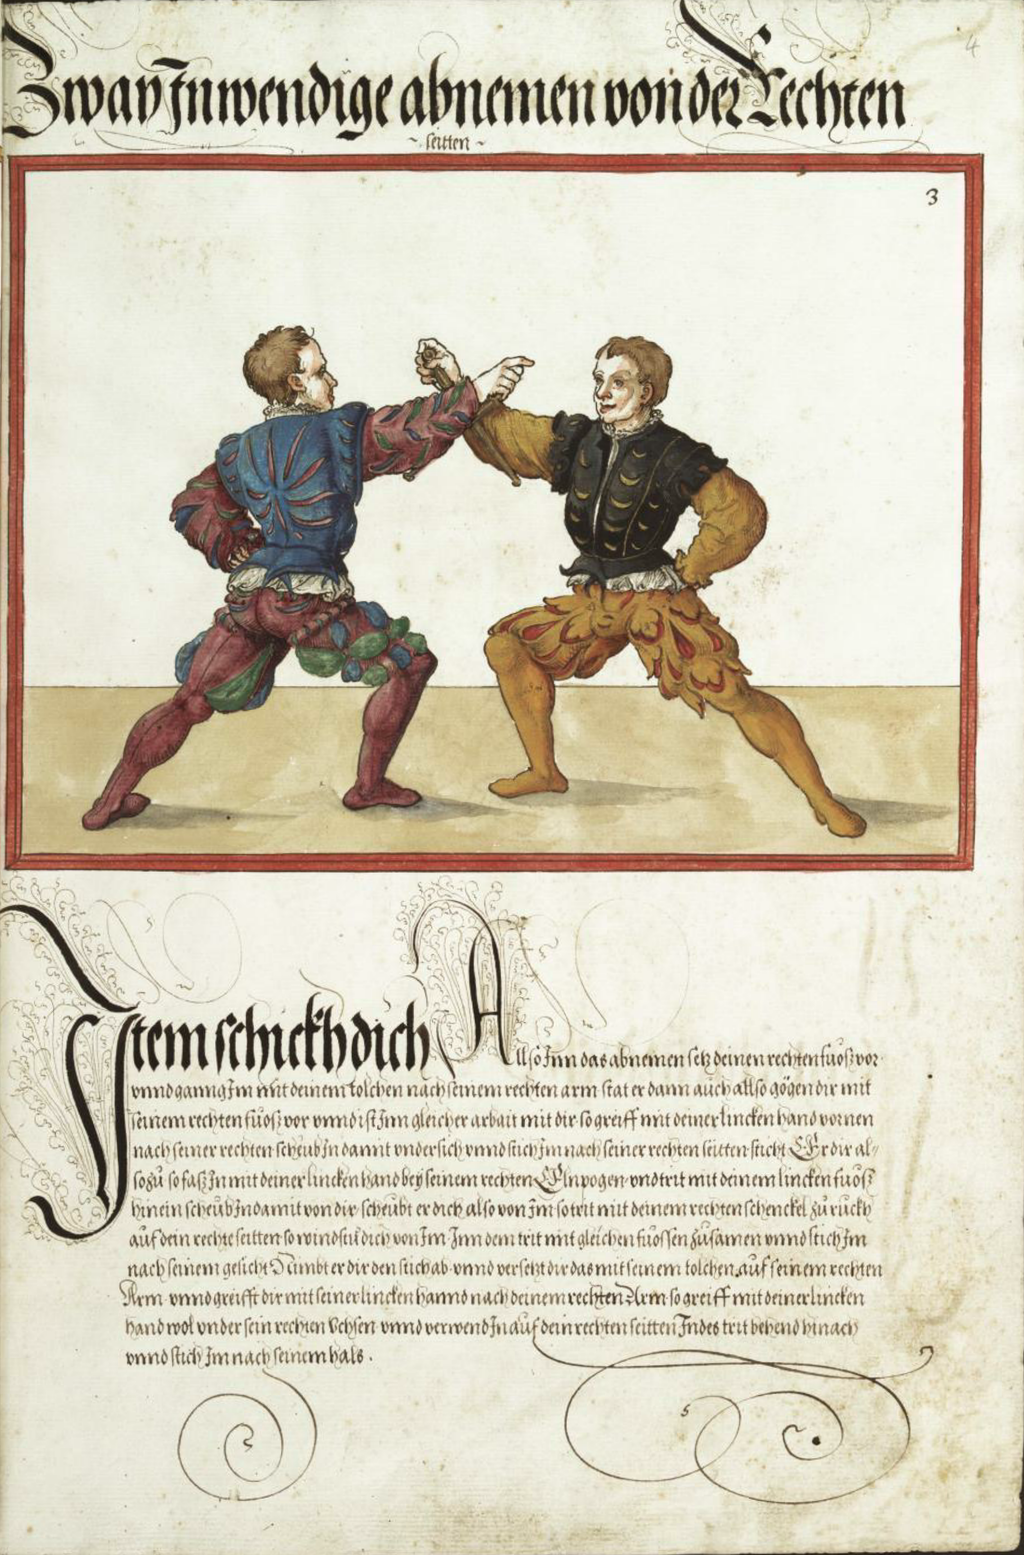 4
Zway Inwendige abnemen von der Rechten
~ seitten ~
3
Item schickh dich Allso Inn das abnemen setz deinen rechten fuosz vor
vnnd ganng Im mit deinem tolchen nach seinem rechten arm stat er dann auch allso gögen dir mit
seinem rechten fuosz vor vnnd ist Inn gleicher arbait mit dir so greiff mit deiner lincken hand vornen
nach seiner rechten scheub In damit vndersich vnnd stich Im nach seiner rechten seitten sticht Er dir al-
so zu so fasz In mit deiner lincken hand bey seinem rechten Elnpogen vnd trit mit deinem lincken fuosz
hinein scheub In damit von dir scheubt er dich also von Im so trit mit deinem rechten schenckel zu ruckh
auf dein rechte seitten so windstu dich von Im Inn dem trit mit gleichen fuossen zusamen vnnd stich Im
nach seinem gesicht Nimbt er dir den stich ab vnnd versetzt dir das mit seinem tolchen auf seinem rechten
Arm vnnd greifft dir mit seiner lincken hannd nach deinem rechten Arm so greiff mit deiner lincken
hand wol vnder sein rechten Vchsen vnnd verwend In auf dein rechten seitten Indes trit behend hinach
vnnd stich Im nach seinem hals .